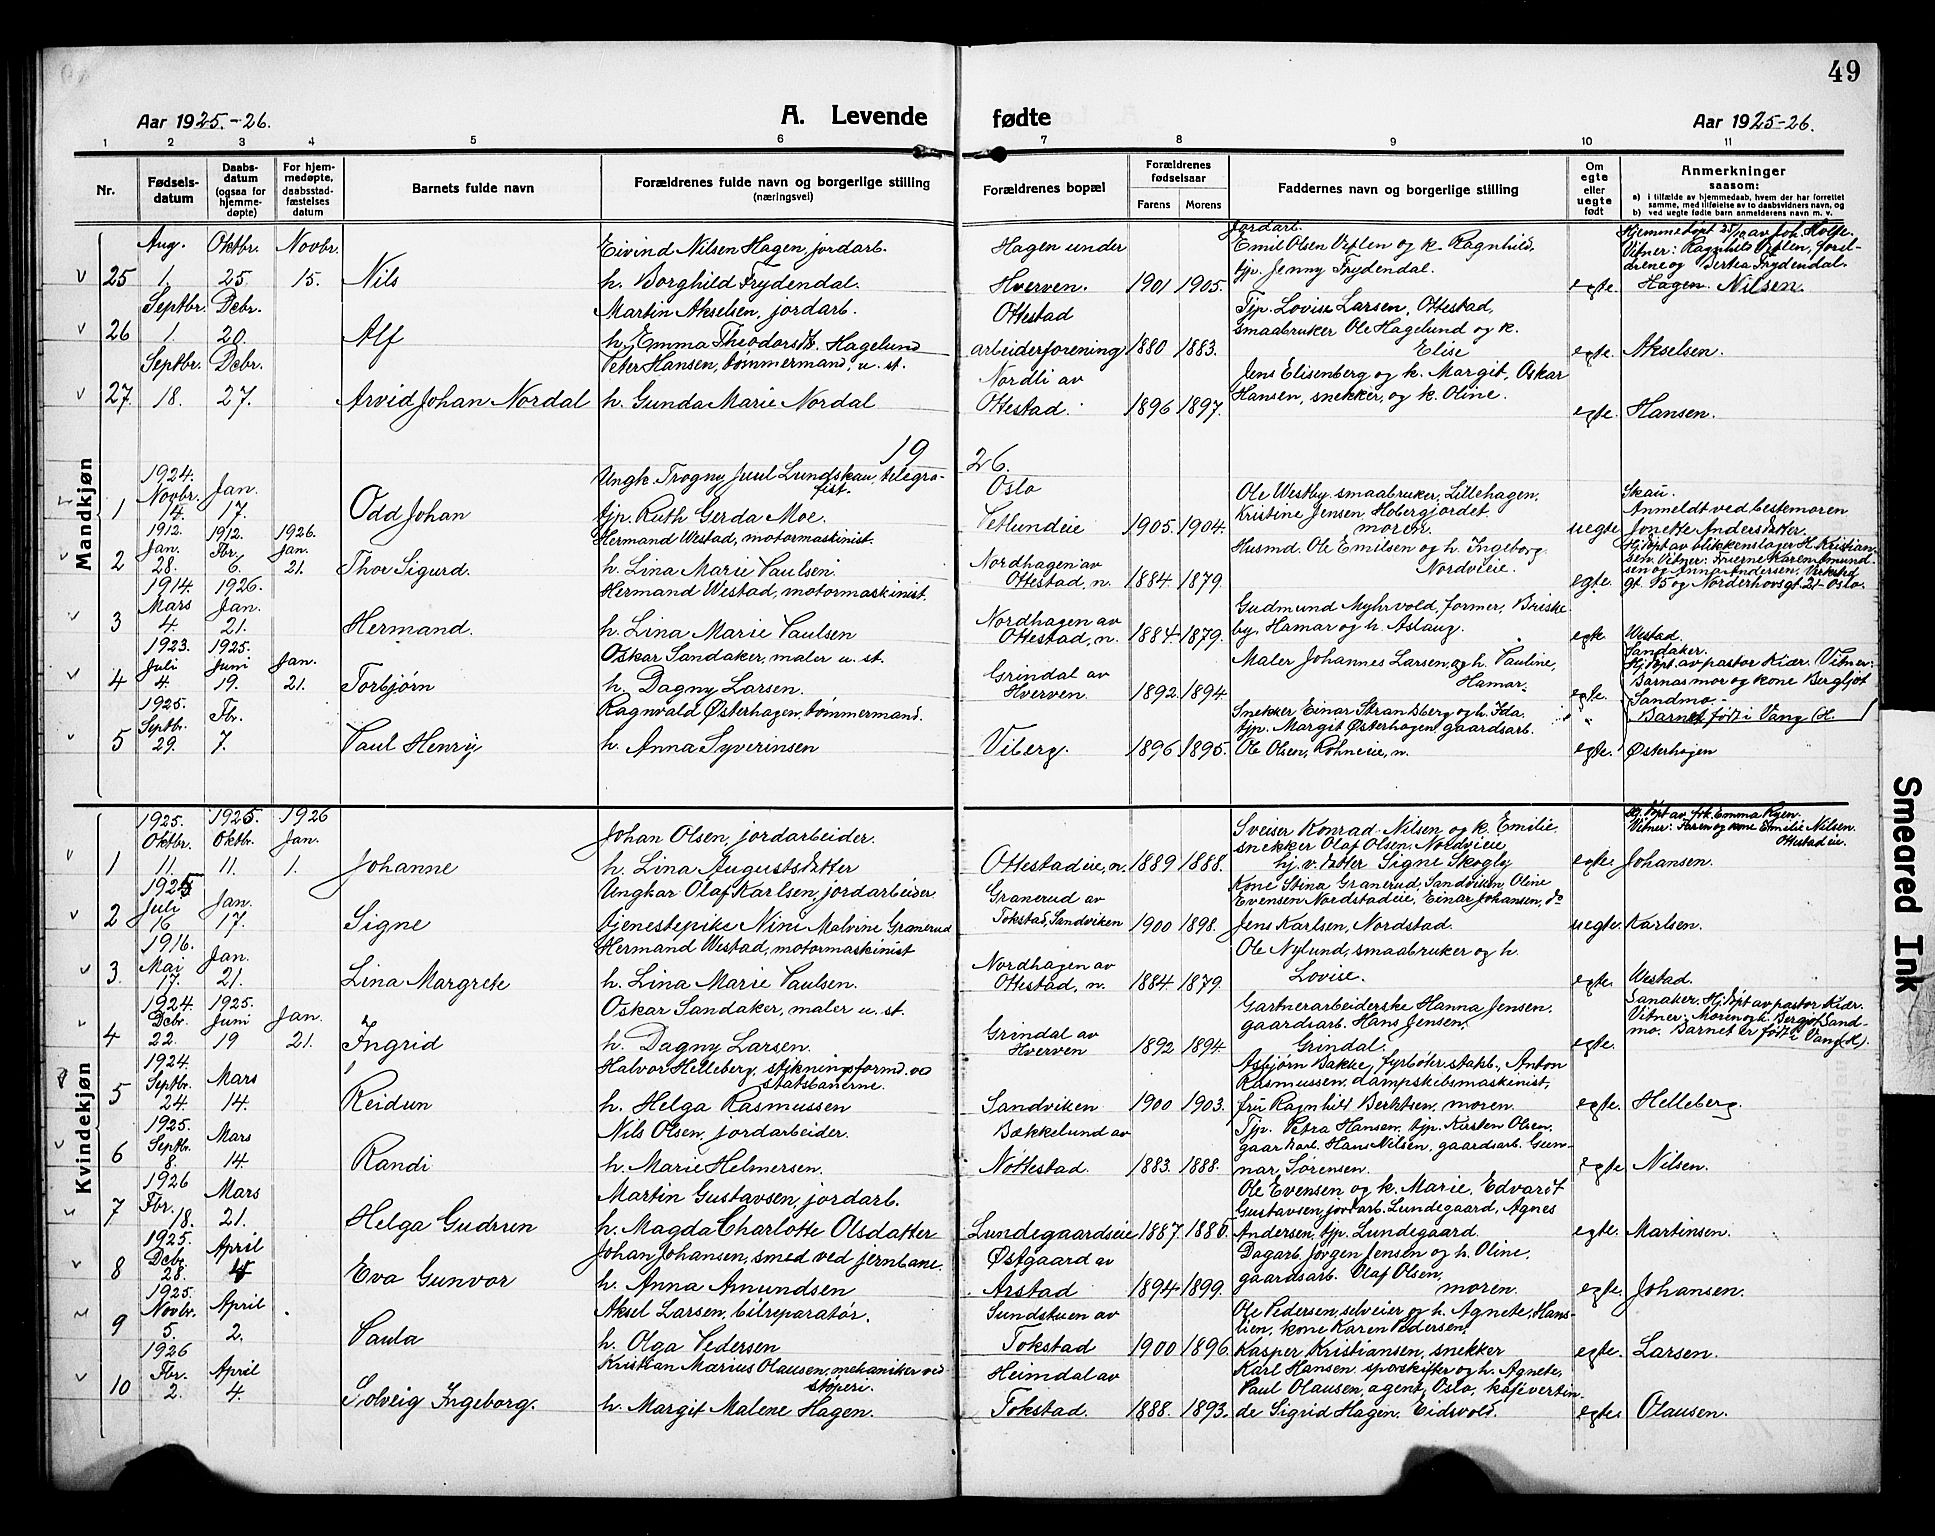 49
Aar 1925.-26.
A. Levende fødte
Aar 1925-26.
1 2 3 4 5 6 7 8 9 10 11
Nr.
Fødsels-datum
Daabs-datum (ogsaa for hjemme-døpte)
For hjem-medøpte, daabsstad-fæstelses datum
Barnets fulde navn
Forældrenes fulde navn og borgerlige stilling (næringsvei)
Forældrenes bopæl
Forældrenes fødselsaar
Farens Morens
Faddernes navn og borgerlige stilling
Om egte eller uegte født
Anmerkninger saasom:
a) i tilfælde av hjemmedaab, hvem der har forrettet samme, med tilføielse av to daabsvidners navn, og
b) ved uegte fødte barn anmelderens navn m. v.
Mandkjøn
25 Aug. 1. Oktbr. 25. Novbr. 15. Nils
Eivind Nilsen Hagen, jordarb.
h. Borghild Frydendal.
Hagen under Hverven. 1901 1905.
Jordarb. Emil Olsen Veflen og k. Ragnhild,
tjp. Jenny Frydendal.
egte.
Hjemmedøpt 25/10 av Joh. Hoffe.
Vitner: Ragnhild Veflen, foreldrene og Bertea Frydendal.
Hagen Nilsen.
26 Septbr. 1. Dcbr. 20. Alf
Martin Akselsen, jordarb.
h. Emma Theodorsdtr. Hagelund
Ottestad arbeiderforening 1880 1883.
Tjp. Lovise Larsen, Ottestad,
smaabruker Ole Hagelund og k.
Elise
egte. Akselsen.
27. Septbr. 18. Dcbr. 27. Arvid Johan Nordal
Peter Hansen, tømmermand, u. st.
h. Gunda Marie Nordal
Nordli av Ottestad. 1896 1897.
Jens Elisenberg og k. Margit, Oskar
Hansen, snekker, og k. Oline.
egte. Hansen.
19 26.
1 1924. Novbr. 14. Jan. 17. Odd Johan
Ungk. Trogny Juul Lundskau, telegrafist.
tjp. Ruth Gerda Moe.
Oslo Vetlundeie 1905. 1904.
Ole Westby, smaabruker, Lillehagen,
Kristine Jensen, Hobergjordet
moren.
uegte
Skau.
Anmeldt ved bestemoren
Jonette Andersdatter.
2 1912. Jan. 28. 1912. Fbr. 6. 1926. Jan. 21. Thor Sigurd.
Hermand Westad, motormaskinist.
h. Lina Marie Paulsen
Nordhagen av Ottestad, n. 1884. 1879.
Husmd. Ole Emilsen og h. Ingeborg.
Nordvieie.
egte.
Hj.døpt av blikkenslager H. Kristiansen. Vitner: Fruene Karen Amundsen og Anna Andersen, Verksted gt. 15 og Norderhovsgt. 21. Oslo.
3 1914. Mars 4. 1926. Jan. 21. Hermand.
Hermand Westad, motormaskinist.
h. Lina Marie Paulsen
Nordhagen av Ottestad, n. 1884. 1879.
Gudmund Myhrvold, former, Briskeby, Hamar og h. Aslaug.
egte. Westad.
4 1923. Juli 4. 1925. Juni 19. Jan. 21. Torbjørn
Oskar Sandaker, maler u. st.
h. Dagny Larsen.
Grindal av Hverven. 1892. 1894.
Maler Johannes Larsen, og h. Pauline,
Hamar.
egte.
Sandaker.
Hj.døpt. av pastor Kiær. Vitner:
Barnas mor og kone Bergljot
Sandmo.
Barnet født i Vang (H.
5 1925. Septbr. 29. Fbr. 7. Paul Henry
Ragnvald Østerhagen, tømmermand.
h. Anna Syverinsen
Viberg. 1896 1895.
Snekker Einar Strandberg og h. Ida.
tjp. Margit Østerhagen, gaardsarb.
Ole Olsen, Rohneeie, n.
egte. Østerhagen
Kvindekjøn
1 1925. Oktbr. 11. 1925. Oktbr. 11. 1926 Jan. 1. Johanne
Johan Olsen, jordarbeider.
h. Lina Augustsdatter
Ottestadeie, n. 1889 1888.
Sveiser Konrad Nilsen og k. Emilie.
snekker Olaf Olsen, Nordvieie
hj. v. datter Signe Skogly
egte.
Hj. døpt av frk. Emma Ryen.
Vitner: Faren og kone Emelie Nilsen.
Ottestadeie.
Johansen.
2 1925 Juli 16 Jan. 17. Signe
Ungkar Olaf Karlsen, jordarbeider
tjenestepike Nini Malvine Granerud
Granerud av Tokstad, Sandviken 1900 1898.
Kone Stina Granerud, Sandviken, Oline
Evensen Nordstadeie, Einar Johansen, do
Jens Karlsen, Nordstad.
uegte Karlsen.
3 1916. Mai 17. Jan. 21. Lina Margrete
Hermand Westad, motormaskinist
h. Lina Marie Paulsen.
Nordhagen av Ottestad, n. 1884 1879.
Ole Nylund, smaabruker og h.
Lovise.
egte. Westad.
4 1924. Dcbr. 22. 1925. Juni 19 Jan. 21. Ingrid
Oskar Sandaker, maler u. st.
h. Dagny Larsen.
Grindal av Hverven 1892 1894.
Gartnerarbeiderske Hanna Jensen.
gaardsarb. Hans Jensen.
Grindal.
egte.
Sanaker. Hj.døpt av pastor Kiær.
Vitner: Moren og k. Bergljot Sandmo. Barnet er født i Vang (H).
5 1924. Septbr. 24. Mars 14. Reidun
Halvor Helleberg, stikningsformd. ved statsbanerne.
h. Helga Rasmussen
Sandviken 1900 1903.
Asbjørn Bakke, fyrbøter. statsb., Anton
Rasmussen, dampskibsmaskinist,
fru Ragnhild Berktsen, moren.
egte. Helleberg.
6 1925. Septbr. 8. Mars 14. Randi
Nils Olsen, jordarbeider.
h. Marie Helmersen.
Bækkelund av Nøttestad. 1883. 1888.
Tjp. Petra Hansen, tjp. Kirsten Olsen,
gaardsarb. Hans Nilsen, gaardsarb. Gunnar Sørensen.
egte. Nilsen.
7 1926 Fbr. 18. Mars 21. Helga Gudrun
Martin Gustavsen, jordarb.
h. Magda Charlotte Olsdatter
Lundegaardseie 1887. 1886.
Ole Evensen og k. Marie, Edvardt
Gustavsen, jordarb. Lundegaard, Agnes
Andersen, tjp. Lundegaard
egte. Martinsen.
8 1925. Dcbr. 28. April Eva Gunvor
Johan Johansen, smed ved jernbane.
h. Anna Amundsen
Østgaard av Arstad 1894 1899.
Dagarb. Jørgen Jensen og h. Oline.
gaardsarb. Olaf Olsen,
moren
egte. Johansen.
9 1925. Novbr. 5. April 2. Paula
Aksel Larsen, bilreparatør.
h. Olga Pedersen
Sundstuen av Tokstad 1900 1896.
Ole Pedersen, selveier og h. Agnete, Hanslien, kone Karen Pedersen,
Kasper Kristiansen, snekker
egte. Larsen.
10 1926 Fbr. 2. April 4. Solveig Ingeborg.
Kristian Marius Olausen, mekaniker ved støperi.
h. Margit Malene Hagen.
Heimdal av Tokstad. 1888. 1893.
Karl Hansen, sporskifter og h. Agnete,
Paul Olausen, agent, Oslo, kafévertinde Sigrid Hagen, Eidsvold.
egte. Olausen.
Smeared Ink